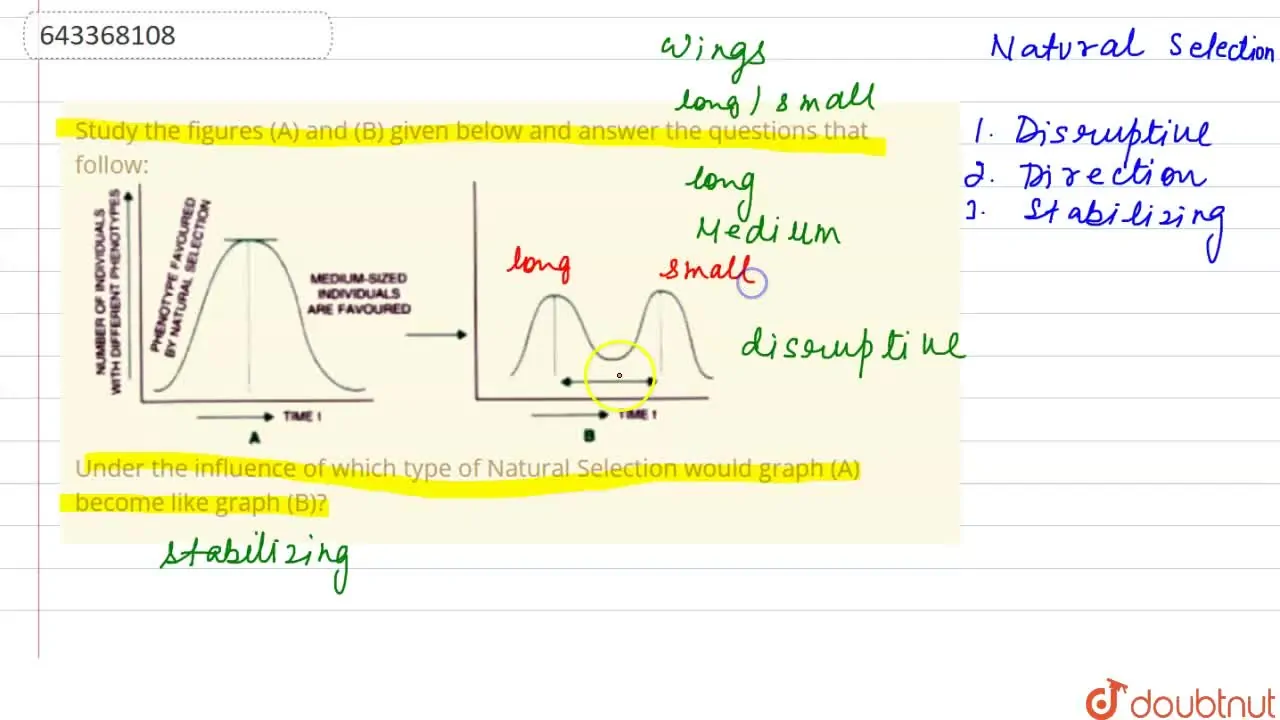 643368108
Wings
long/small
Natural Selection
1. Disruptive
2. Direction
3. Stabilizing
Study the figures (A) and (B) given below and answer the questions that
follow:
long
Medium
NUMBER OF INDIVIDUALS
WITH DIFFERENT PHENOTYPES
PHENOTYPE FAVOURED
BY NATURAL SELECTION
MEDIUM-SIZED
INDIVIDUALS
ARE FAVOURED
long
small
disruptive
TIME I
A
TIME I
B
Under the influence of which type of Natural Selection would graph (A)
become like graph (B)?
stabilizing
doubtnut